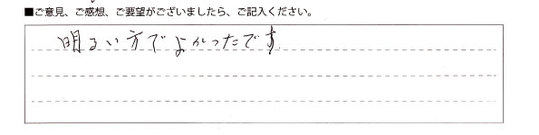 ■ご意見、ご感想、ご要望がございましたら、ご記入ください。
明るい方でよかったです